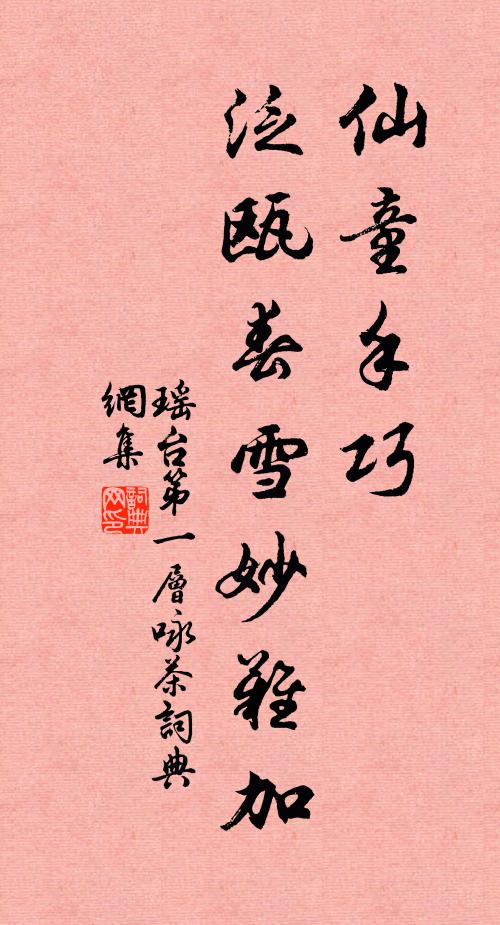 仙童手巧
泛瓯春雪妙難加
瑶台第一層咏茶詞典
網集
詞典
网印